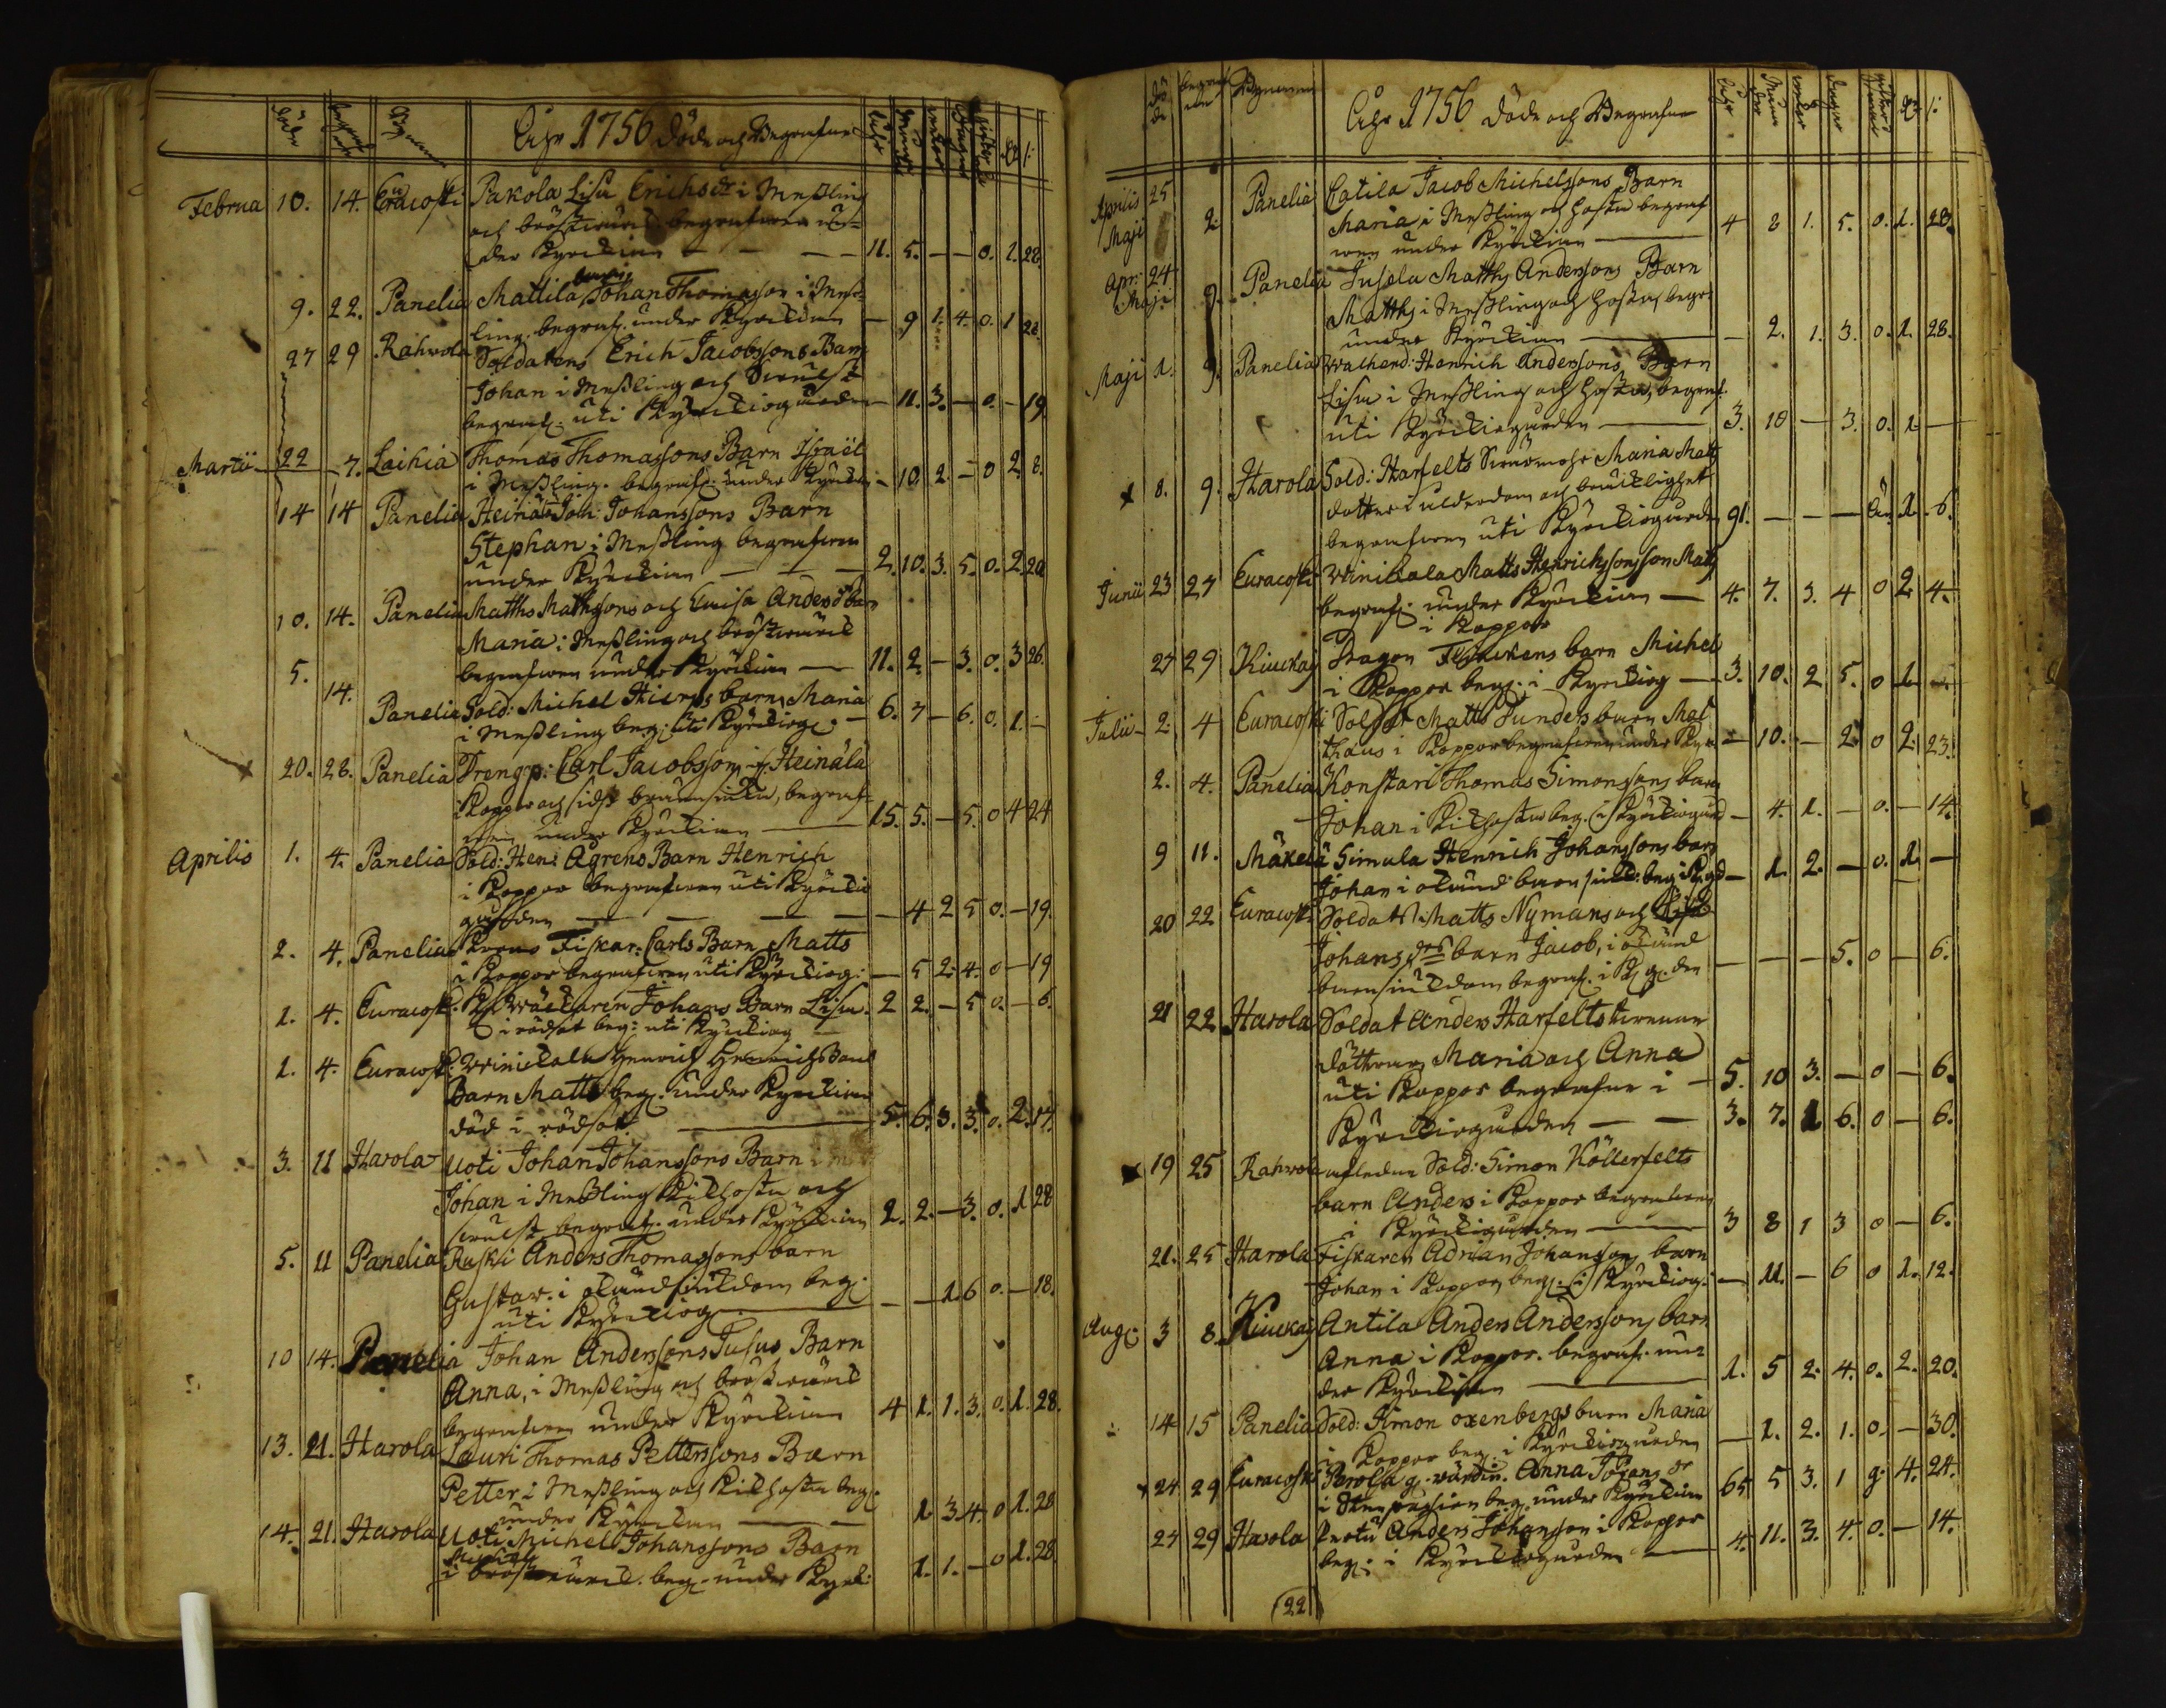 Döde
Byarnas
Åhr 1756 Döde och Begrafne
Februa 10. 14. Euracoski Pakola Lisa Erichsdr i Meßling
och bröstwärck begrafwen un-
der Kyrckian 11. 5. — — 0. 1. 28.
9. 22. Panelia Mattila Johan Thomasson i Meß-
ling. begraf. under Kyrckian — 9 1. 4. 0. 1 28.
27 29 Rahwola Soldatens Erich Jacobssons Barn
Johan i Meßling och Swulst
begraf. uti Kyrckiogården — 11. 3. — 0. — 19.
Martii 22 7. Laihia Thomas Thomassons Barn Israël
i Meßling. begraf. under Kyrckian — 10. 2. — 0 2. 8.
14 14 Panelia Heinälä Joh: Johanssons Barn
Stephan i Meßling begrafwen
under Kyrckian — 2. 10. 3. 5. 0. 2. 20
10. 14. Panelia Matths Mathssons och Luisa Anders dr barn
Maria i Meßling och bröstwärck
begrafwen under Kyrckian — 11. 2. — 3. 0. 3 26.
5. 14. Panelia Sold: Michel Hierps barn Maria
i Meßling beg. uti Kyrckiog. — 6. 7 — 6. 0. 1. —
20. 28. Panelia Drengp: Carl Jacobsson i Heinälä
Koppor och sidst brännsiuka, begraf-
wen under Kyrckian — 15. 5. — 5. 0 4 24
Aprilis 1. 4. Panelia Sold: Hen: Ågrens Barn Henrich
i Koppor begrafwen uti Kyrckio
gården — — 4 2 5 0. — 19.
2. 4. Panelia Krono Fiskar: Carls Barn Matts
i Koppor begrafwen uti Kyrckiog: — 5 2. 4. 0 — 19
1. 4. Euracoski Johans Barn Lisa. 2 2. — 5 0. — 6.
i rödsot beg: uti Kyrckiog —
1. 4. Euracoski Winickala Henrich Henrichssons
Barn Matts beg. under Kyrckian
död i rödsot — 5. 6. 3. 3. 0. 2. 17.
3. 11 Harola Uoti Johan Johanssons Barn
Johan i Meßling Kikhosta och
swulst begraf. under Kyrckian 2. 2. — 3. 0. 1 28
5. 11 Panelia Ruski Anders Thomassons barn
Gustav. i okänd siukdom beg:
uti Kyrckiog — — — 1. 6 0. — 18.
10 14. Panelia Johan Anderssons Jusus Barn
Anna, i Meßling och bröstwärck
begrafwen under Kyrckian 4 1. 1. 3. 0. 1. 28.
13. 21. Harola Lauri Thomas Pettersons Barn
Petter i Meßling och Kikhosta beg:
under Kyrckian — 1 3 4. 0 1. 28
14. 21. Harola Uoti Michel Johanssons Barn
i bröstwärck. beg. under Kyrk: 1. 1. — 0 1. 28.
Byarnas
Åhr 1756 Döde och Begrafne
Aprilis 25
Maji 2. Panelia Catila Jacob Michelssons Barn
Maria i Meßling och hosta begraf
wen under Kyrckian — 4 8 1. 5. 0. 1. 28.
Apr: 24
Maji 9. Panelia Jusela Matths Anderssons Barn
Matths i Meßling och hosta, begr:
under Kyrckian — — 2. 1. 3. 0. 1. 28.
Maji 1. 9. Panelia Walhend: Henrich Anderssons Barn
Lisa i Meßling och hosta, begraf.
uti Kyrckiogården — 3. 10 — 3. 0. 1 —
8. 9. Harola Sold: Harfelts Swärmohr Maria Matts
dotter i ålderdom och bräcklighet
begrafwen uti Kyrckiogården 91. — — — 1. 6.
Junii 23 27 Euracoski Winickala Matts Henrichssons son Matts
begraf. under Kyrckian — 4. 7. 3. 4 0 2. 4.
i Koppor
27 29 Kiuckaj Dragon barn Michel
i Koppor beg. i Kyrckiog — 3. 10. 2 5. 0 1 —
Julii 2. 4 Euracoski Soldat Matts Sunders barn Mat
thæus i Koppor begrafwen under Kyr — 10. — 2. 0 2. 23.
2. 4. Panelia Konstari Thomas Simonssons barn
Johan i Kikhosta beg. i Kyrckiogård — 4. 1. — 0. — 14.
9 11. Mäkelä Simula Henrich Johanssons barn
Johan i okänd barn siukd: beg i K.gd — 1. 2. — 0. 1. —
20 22 Euracoski Soldat Matts Nymans och
Johans dr barn Jacob, i okänd
barnsiukdom begraf. i K.g.den — — — 5. 0 — 6.
21 22 Harola Soldat Anders Harfelts twenne
döttrar Maria och Anna
uti Koppor begrafne i — 5. 10 3. — 0 — 6.
Kyrckiogården — — 3. 7. 1 6. 0 — 6.
19 25 Rahwola afledne Sold: Simon Köllerfelts
barn Anders i Koppor begrafwen
i Kyrckiogården — 3 8 1 3 0 — 6.
21. 25 Harola Fiskaren Adrian Johansson barn
Johan i Koppor beg. i Kyrckiog: — 11. — 6 0 1. 12.
Aug: 3 8. Kiuckaj Antila Anders Andersson barn
Anna i Koppor. begraf. un-
der Kyrckian — 1. 5 2. 4. 0. 2. 20.
14 15 Panelia Sold: Simon oxenbergs barn Maria
i Koppor beg. i Kyrckiogården — 1. 2. 1. 0. — 30.
24 29 Euracoski Perola g. wärdin. Anna Johans dr
i beg. under Kyrckian 65 5 3. 1 g: 4. 24.
24 29 Harola Anders Johansson i Koppor
beg: i Kyrckiogården — 4. 11. 3. 4. 0. — 14.
(22)